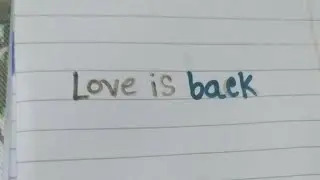 Love is back